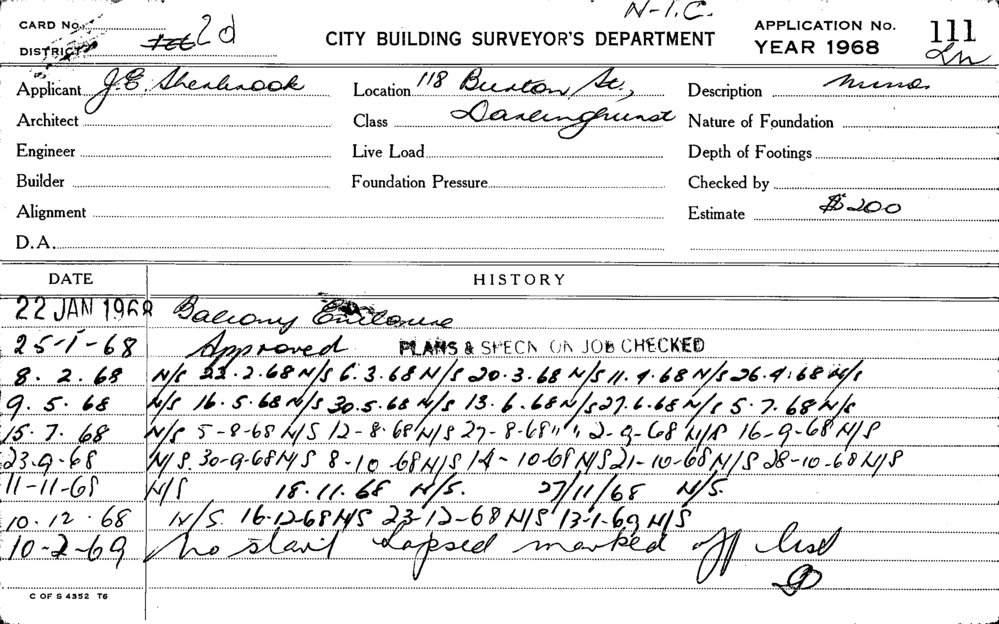 N-I.C.
CARD No. 2d CITY BUILDING SURVEYOR'S DEPARTMENT APPLICATION No. 111
DISTRICT YEAR 1968
Applicant J.E. Shenbrook Location 118 Burton St., Description
Architect Class Darlinghurst Nature of Foundation
Engineer Live Load Depth of Footings
Builder Foundation Pressure Checked by
Alignment Estimate $200
D.A.
DATE HISTORY
22 JAN 1968 Balcony Enclosure
25-1-68 Approved PLANS & SPECN ON JOB CHECKED
8. 2. 68 N/S 22.2.68 N/S 6.3.68 N/S 20.3.68 N/S 11.4.68 N/S 26.4.68 N/S
9. 5. 68 N/S 16.5.68 N/S 30.5.68 N/S 13.6.68 N/S 27.6.68 N/S 5.7.68 N/S
15. 7. 68 N/S 5-8-68 N/S 12-8-68 N/S 27-8-68 " " 2-9-68 N/S 16-9-68 N/S
23.9-68 N/S. 30-9-68 N/S 8-10-68 N/S 14-10-68 N/S 21-10-68 N/S 28-10-68 N/S
11-11-68 N/S 18.11.68 N/S. 27/11/68 N/S.
10.12.68 N/S. 16-12-68 N/S 23-12-68 N/S 13-1-69 N/S
10-2-69 No start lapsed marked off list
C OF S 4352 T6